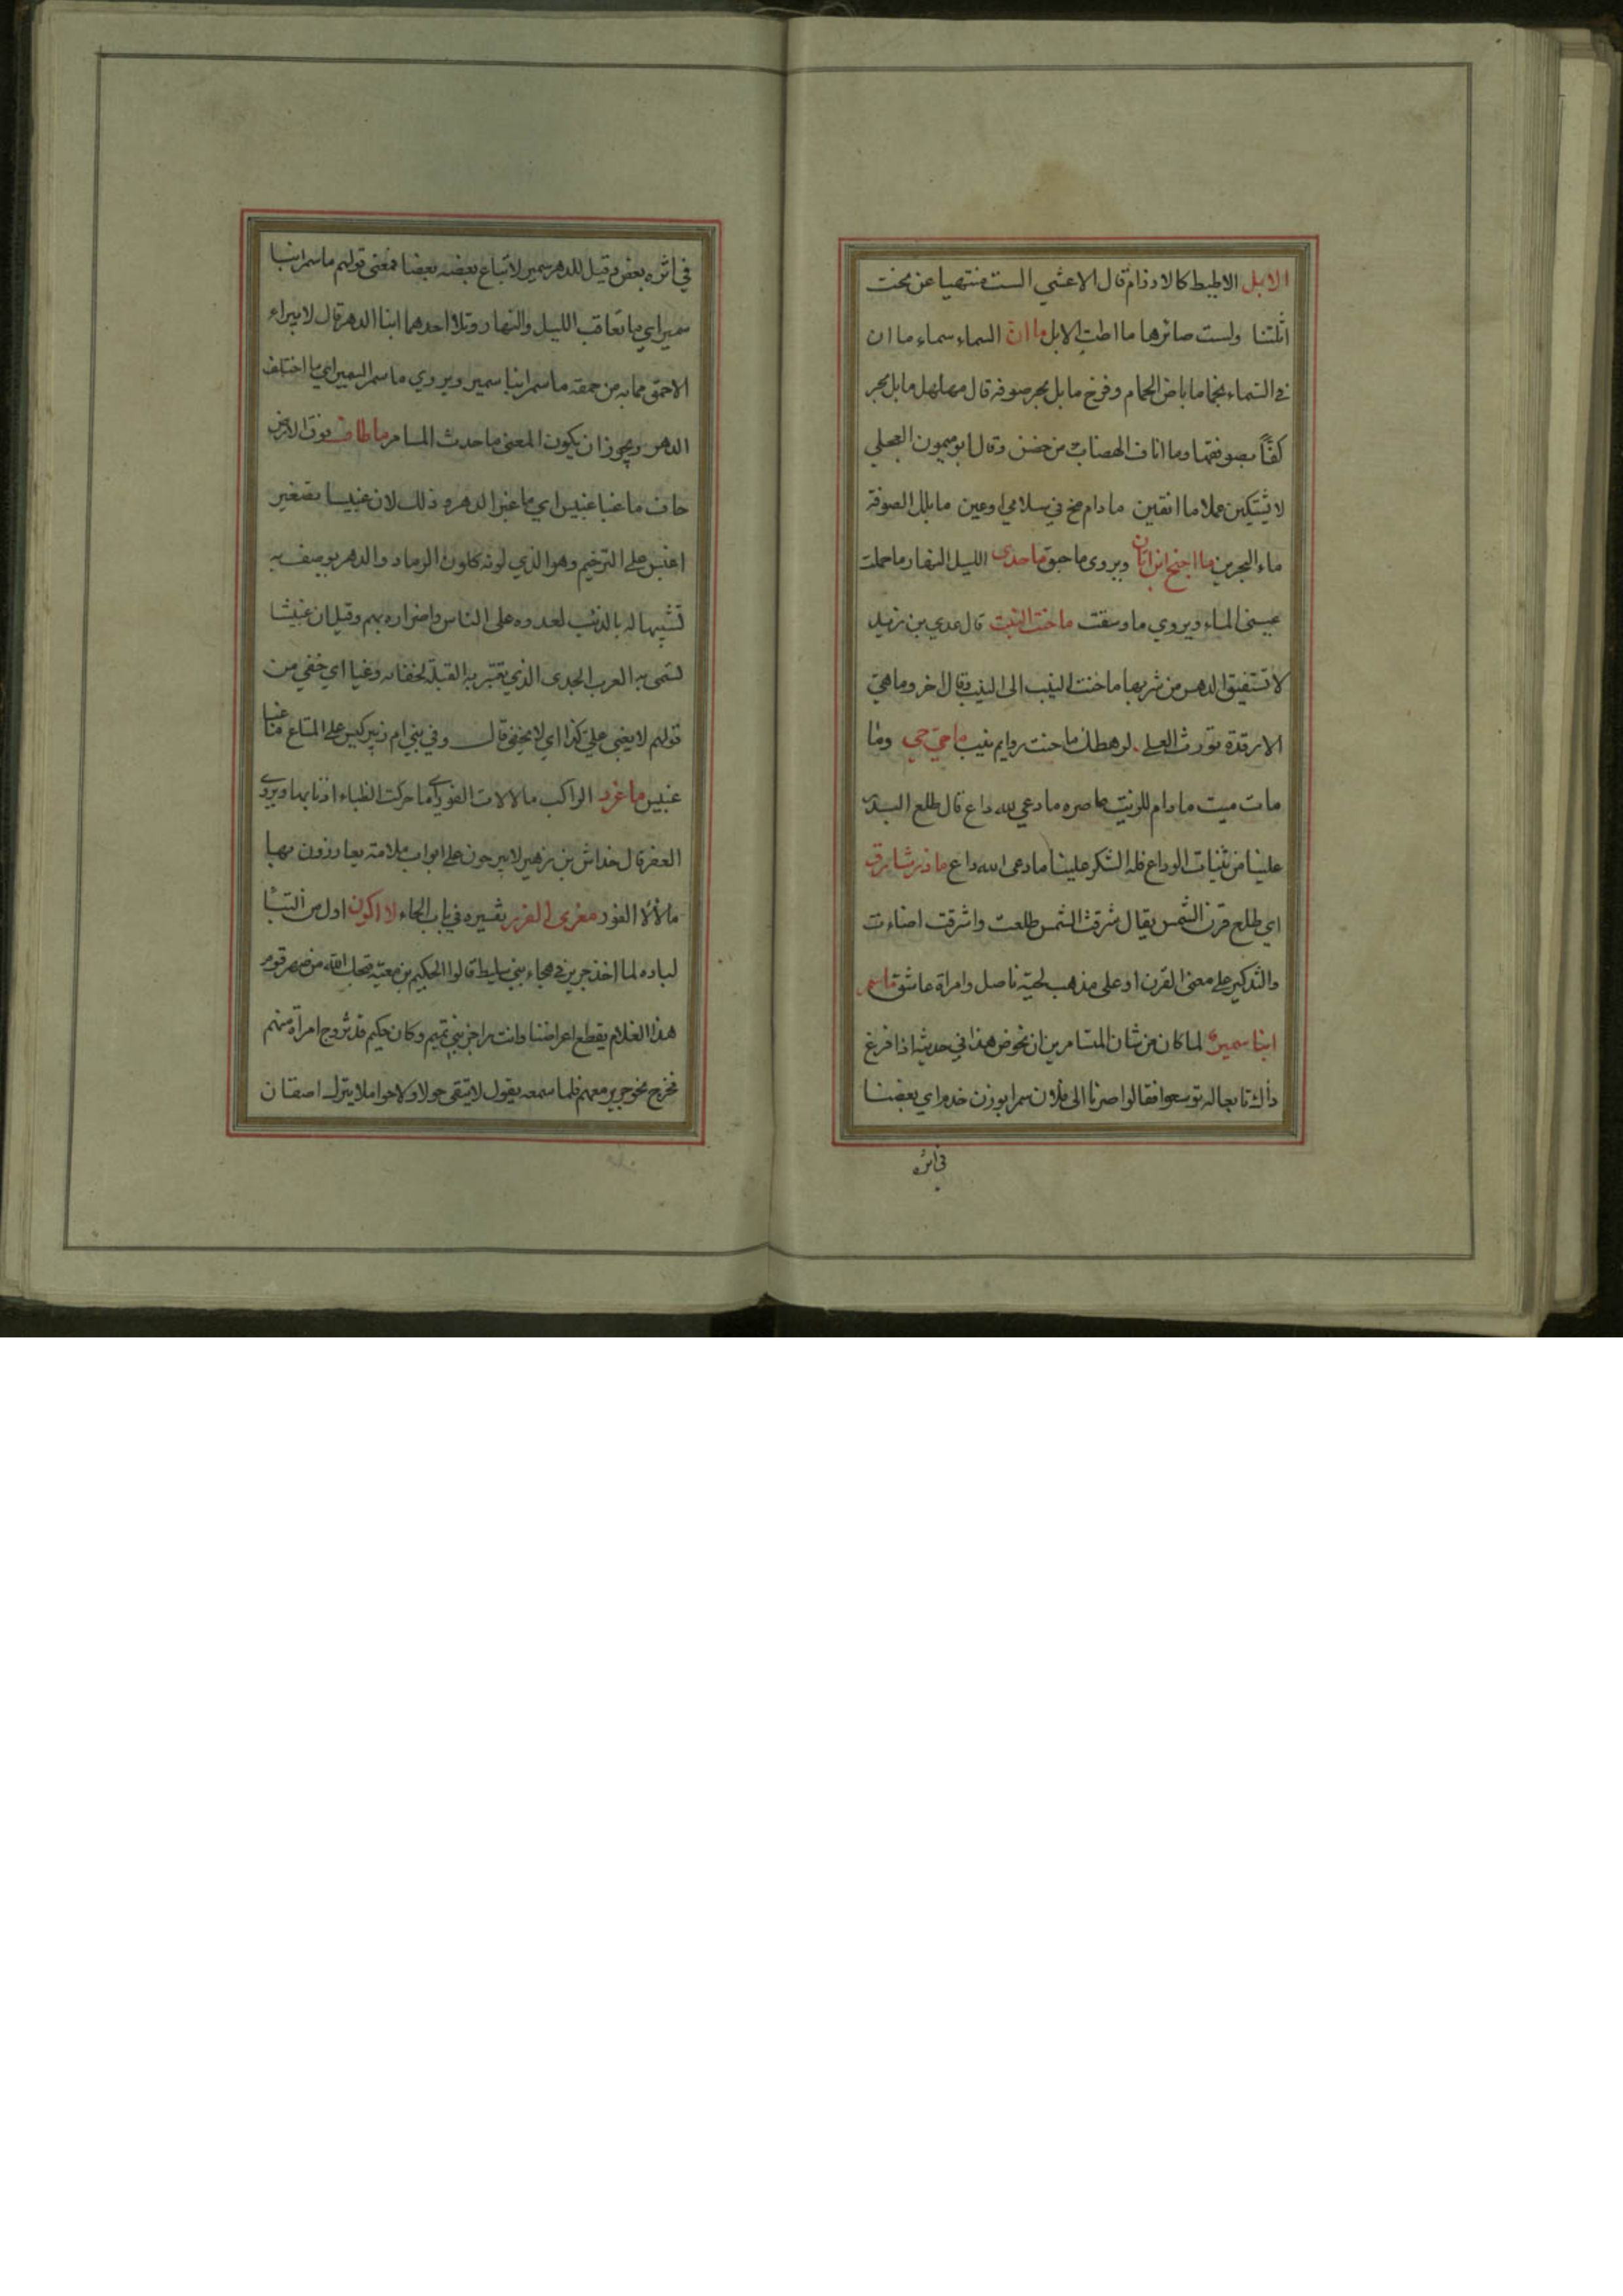 الابل الاطيط كالارزام قال الاعشى الست منتهيا عن نحت
اثلتنا ولست ضائرها ما اطت الابل ما ان السماء سماء ما ان
في السماء نجما ما باض الحمام وفرخ ما بل بحر صوفة قال مهلهل ما بل بحر
كفا بصوفتها وما اناف الهضاب من حضن وقال ابو ميمون العجلي
لا يشتكين عملا ما انقين ما دام مخ في سلامى او عين ما بلل الصوفة
ماء البحرين ما اجنح ابن اتان ويروى ما حبق ما حدى الليل النهار ما حملت
عيني الماء ويروي ما وسقت ما حنت النيب قال عدي بن زيد
لا تستفيق الدهر من شربها ما حنت النيب الى النيب وقال اخر وما هي
الا رقدة تورث العلى لرهطك ما حنت روايم نيب ما حي حي وما
مات ميت ما دام للزيت عاصره ما دعي لله داع قال طلع البدر
علينا من ثنيات الوداع فله الشكر علينا ما دعى لله داع ما ذر شارق
اي طلع قرن الشمس يقال شرقت الشمس طلعت واشرقت اضاءت
والتذكير على معنى القرن او على مذهب لحية ناصل وامراة عاشق ما سمر
ابنا سمير لما كان من شان المتسامرين ان يخوض هذا في حديثه اذا فرغ
ذاك تابعا له توسعوا فقالوا صرنا الى فلان سمرا بوزن خدم اي بعضنا
في اثره
في اثره بعض وقيل للدهر سمير لاتباع بعضه بعضا فمعنى قولهم ما سمر ابنا
سمير اي ما تعاقب الليل والنهار احدهما ابنا الدهر قال لا يبراء
الاحمق مما به من حمقه ما سمر ابنا سمير ويروي ما سمر السمير اي ما اختلف
الدهر ويجوز ان يكون المعنى ما حدث المسامر ما طاف فوق الارض
حاف ما غبا غبيس اي ما غبر الدهر وذلك لان غبيسا تصغير
اغبس على الترخيم وهو الذي لونه كلون الرماد والدهر يوصف به
تشبيها له بالذئب لعدوه على الناس واضراره بهم وقيل ان غبيسا
تسمى به العرب الجدى الذي يعتبر به القبلة لخفائه وغبا اي خفي من
قولهم لا يغبى علي كذا اي لا يخفى قال وفي بني ام زبير كيس على المتاع ما غبا
غبيس ما غرد الراكب ما لالات الفور اي ما حركت الظباء اذنابها ويروى
العفر قال خداش بن زهير لا يبرحون على ابواب ملامة يعاوزون بها
ما لالا الفور معزى الفزر تفسيره في باب الحاء لا اكون اول من التبا
لباده لما اخذ جرير في هجاء بني سليط قالوا الحكيم بن معية قبحك الله من صهر قوم
هذا الغلام يقطع اعراضنا وانت راجز بني تميم وكان حكيم قد تزوج امراة منهم
فخرج نحو جرير معهم فلما سمعه يقول لا يتقى حولا ولا حواملا يترك اصفان